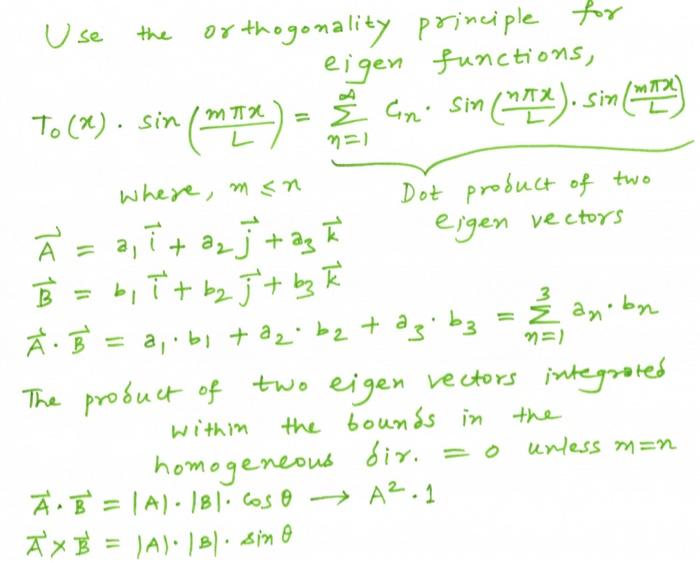 Use the orthogonality principle for
eigen functions,
T₀(x) · sin(mπx/L) = ∞Σn=1 Cn · sin(nπx/L) · sin(mπx/L)
where, m ≤ n
Dot product of two
eigen vectors
A⃗ = a₁ i⃗ + a₂ j⃗ + a₃ k⃗
B⃗ = b₁ i⃗ + b₂ j⃗ + b₃ k⃗
A⃗ · B⃗ = a₁ · b₁ + a₂ · b₂ + a₃ · b₃ = 3Σn=1 an · bn
The product of two eigen vectors integrated
within the bounds in the
homogeneous dir. = 0 unless m=n
A⃗ · B⃗ = |A| · |B| · cos θ → A² · 1
A⃗ × B⃗ = |A| · |B| · sin θ